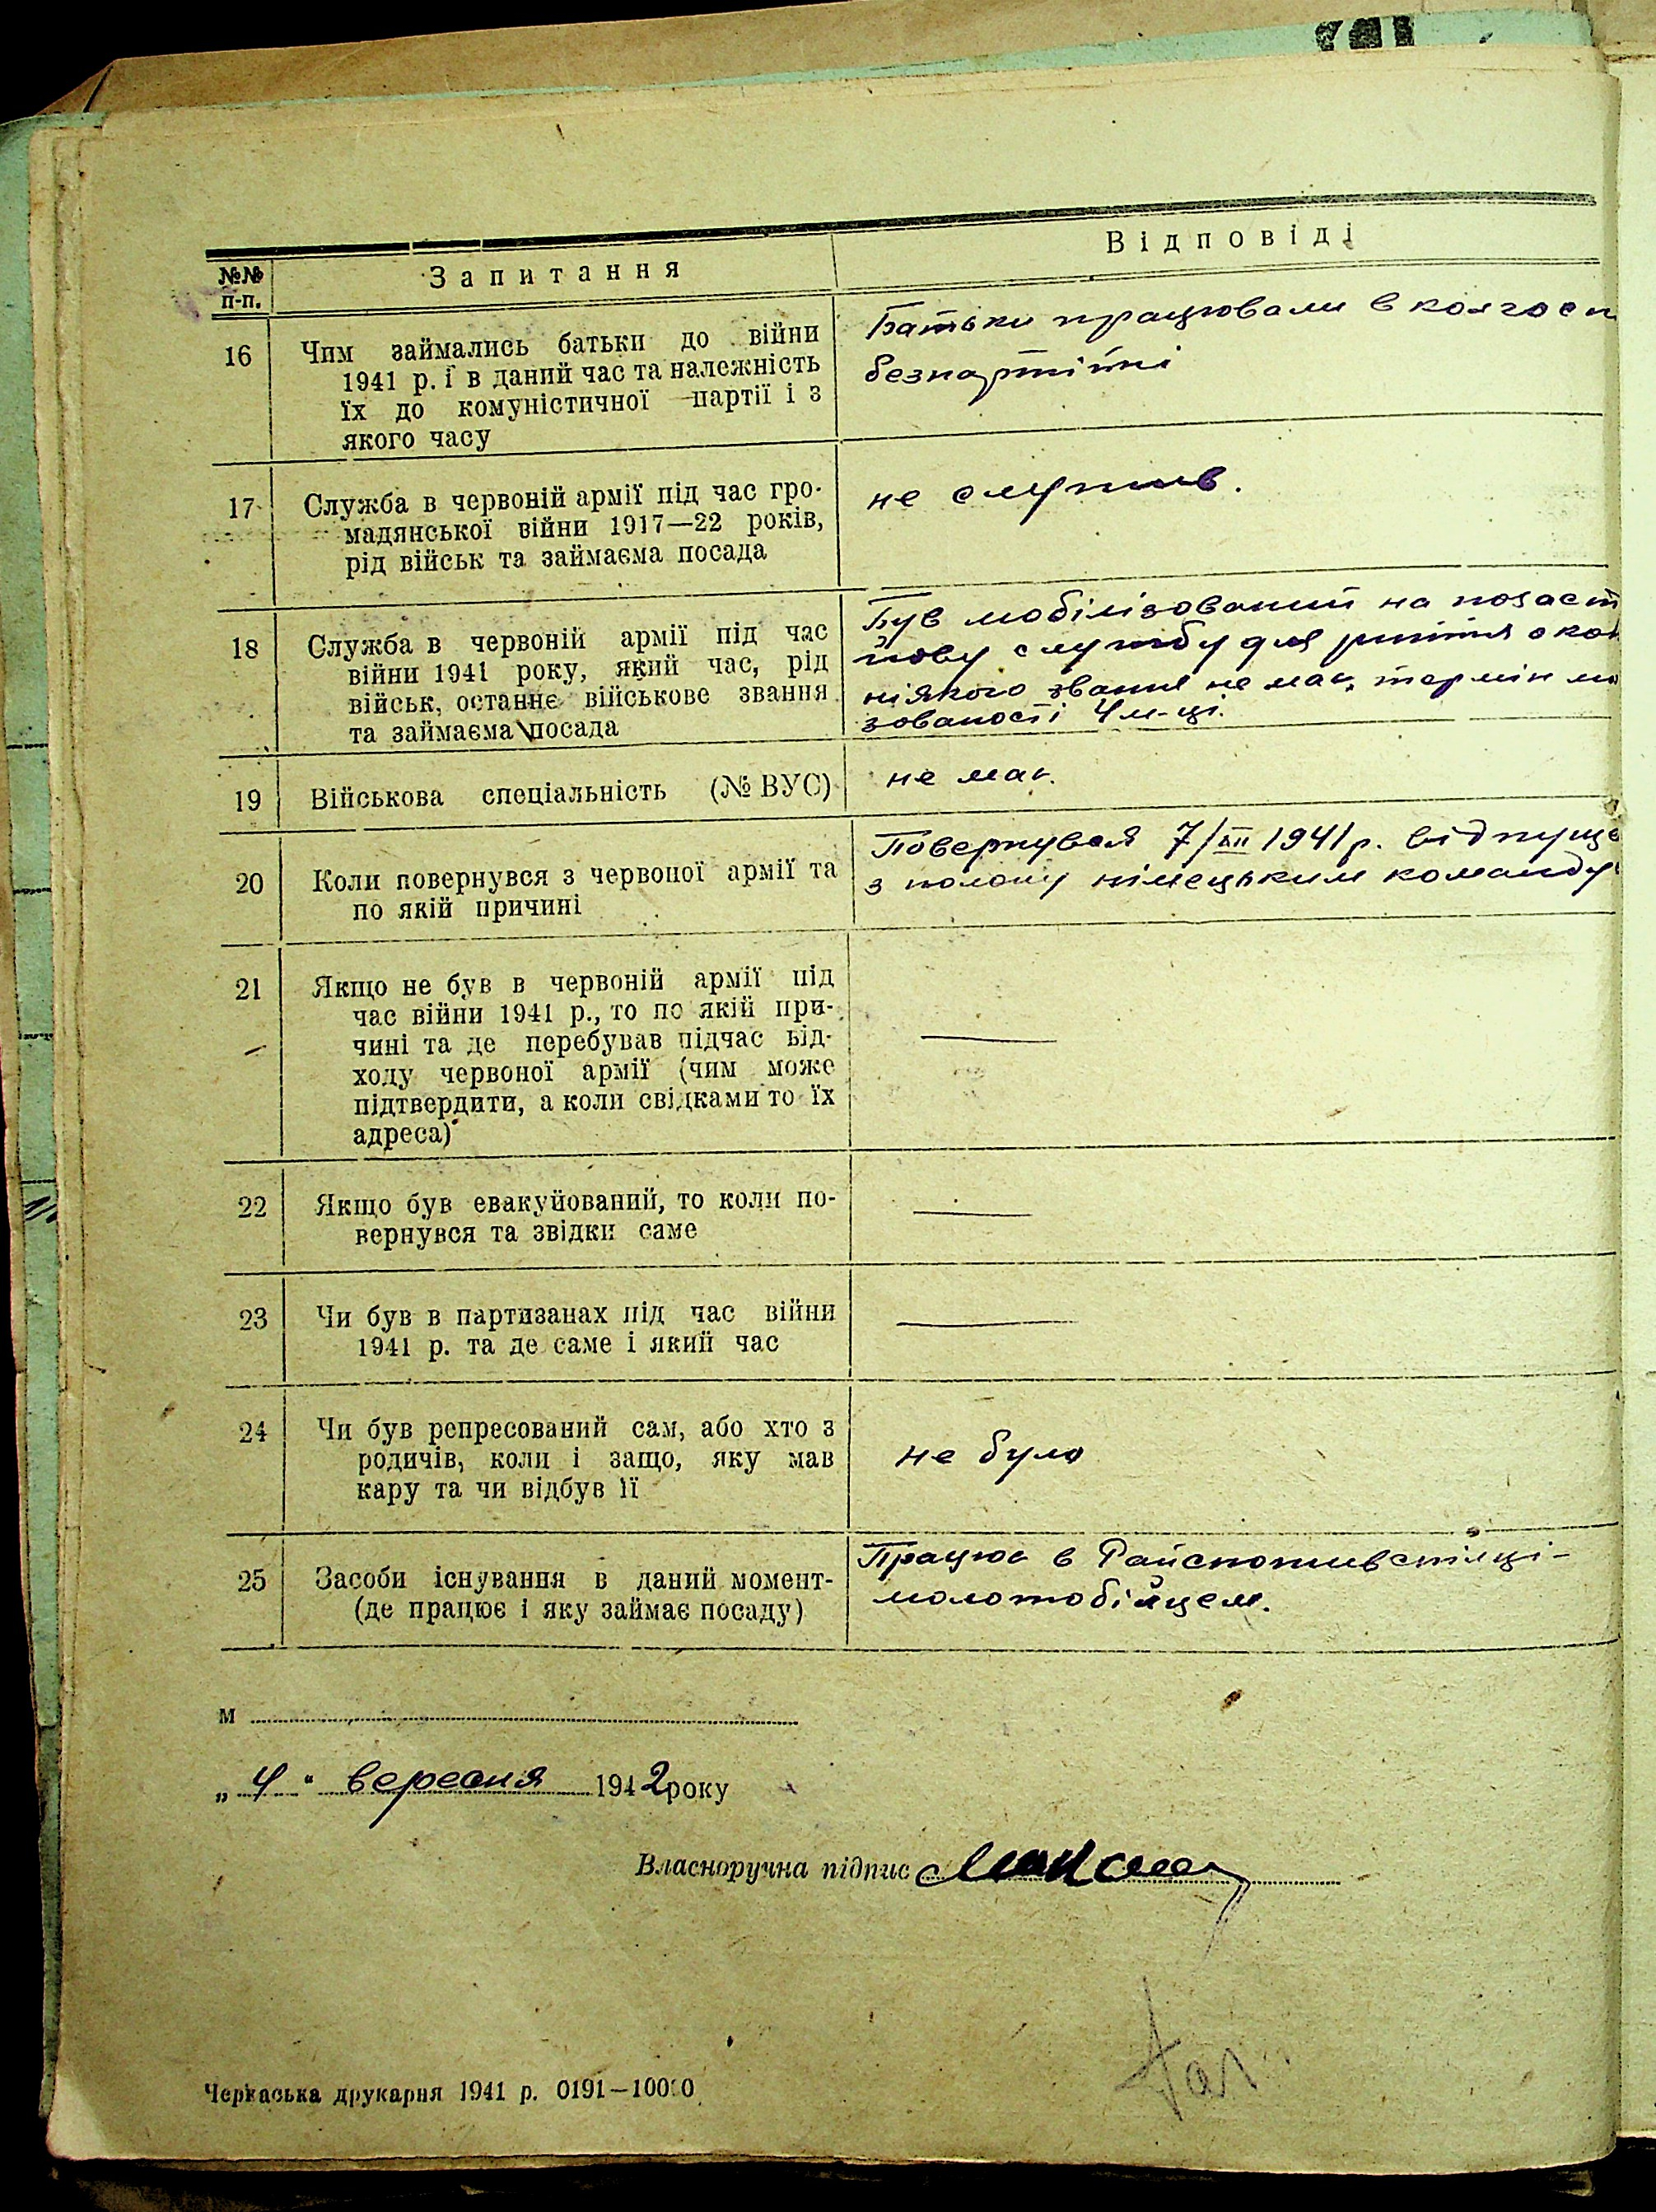 №№ п-п.
Запитання
Відповіді
16
Чим займались батьки до війни
1941 р. і в даний час та належність
їх до комуністичної партії і з
якого часу
Батьки працювали в колгосп
безпартійні
17
Служба в червоній армії під час гро-
мадянської війни 1917—22 років,
рід військ та займаєма посада
не служив.
18
Служба в червоній армії під час
війни 1941 року, який час, рід
військ, останнє військове звання
та займаєма посада
Був мобілізований на
йову службу для риття окоп
ніякого звання не мав, термін мо
зованості 4 м-ці.
19
Військова спеціальність (№ ВУС)
не мав.
20
Коли повернувся з червоної армії та
по якій причині
Повернувся 7/XII 1941 р. відпуще
з полону німецьким команду
21
Якщо не був в червоній армії під
час війни 1941 р., то по якій при-
чині та де перебував підчас від-
ходу червоної армії (чим може
підтвердити, а коли свідками то їх
адреса)
22
Якщо був евакуйований, то коли по-
вернувся та звідки саме
23
Чи був в партизанах під час війни
1941 р. та де саме і який час
24
Чи був репресований сам, або хто з
родичів, коли і защо, яку мав
кару та чи відбув її
не було
25
Засоби існування в даний момент-
(де працює і яку займає посаду)
Працює в Райспоживспілці-
молотобійцем.
м
„4“ вересня 1942 року
Власноручна підпис
Черкаська друкарня 1941 р. 0191—10000